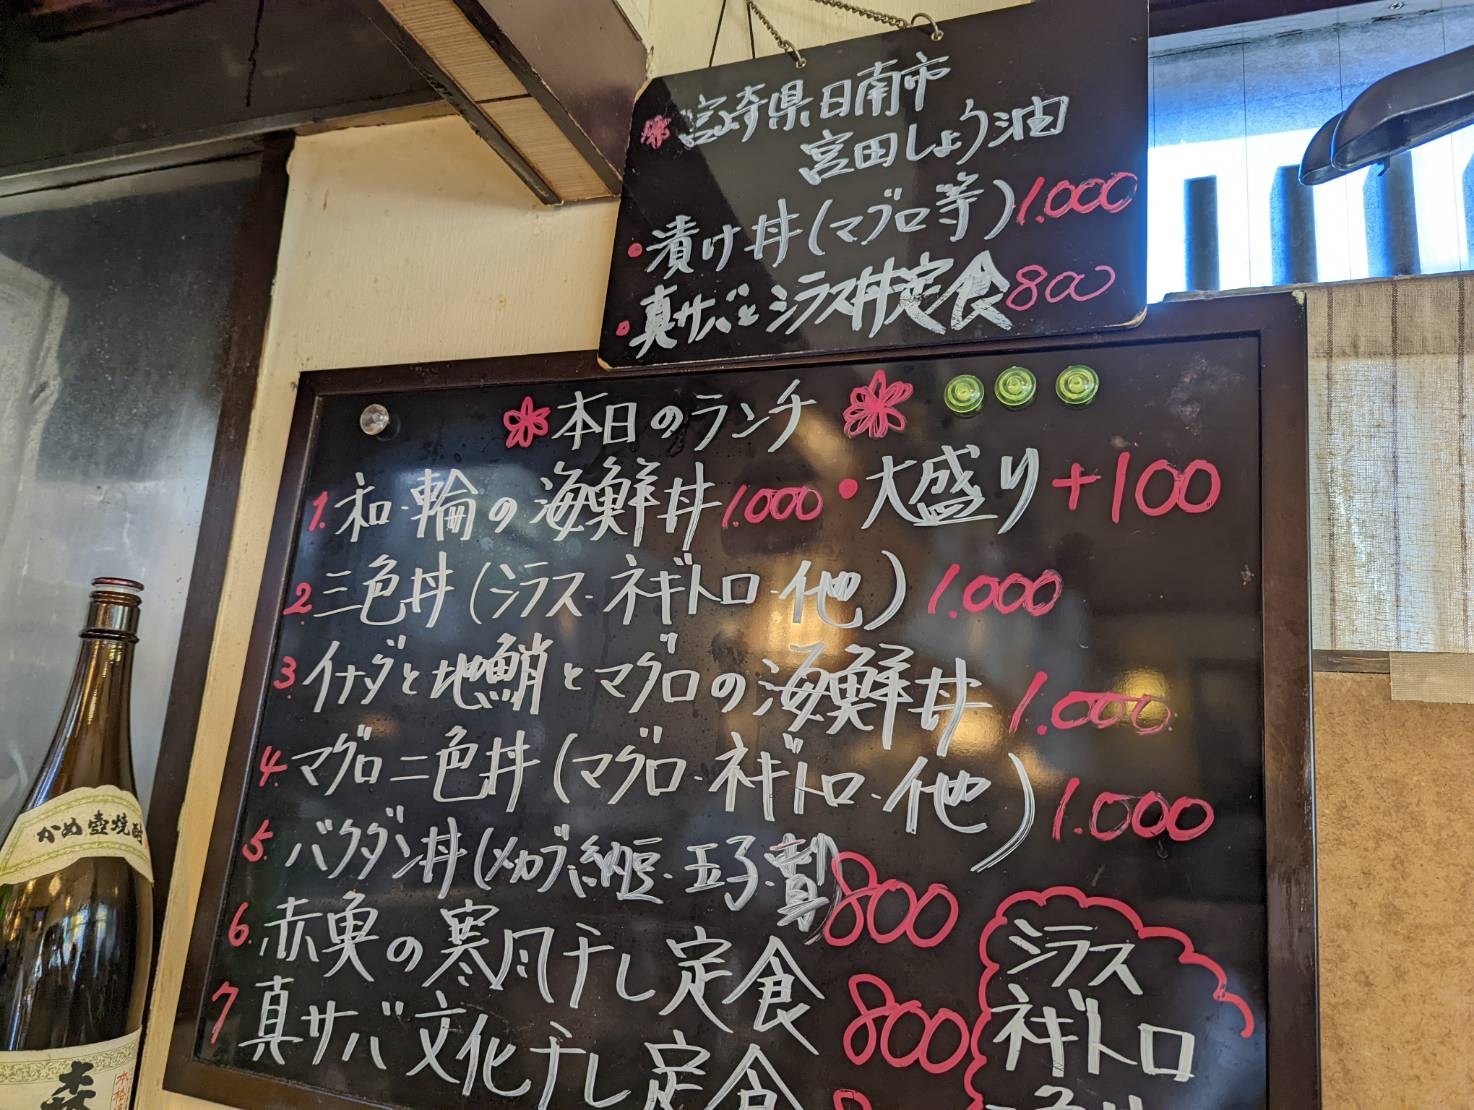 宮崎県日南市
宮田しょう油
・漬け丼(マグロ等)1.000
・真サバとシラス丼定食800
本日のランチ
1. 和・輪の海鮮丼1.000 ・大盛り+100
2. 三色丼(シラス・ネギトロ・他) 1.000
3. イナダと地鮹とマグロの海鮮丼 1.000
4. マグロ二色丼(マグロ・ネギトロ・他) 1.000
5. バクダン丼(メカブ・納豆・玉子・ 800
6. 赤魚の寒風干し定食 800
7 真サバ文化干し定食
シラス
ネギトロ
かめ壺焼酎
本格焼